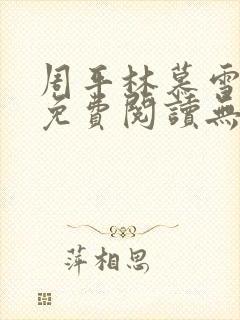 周平林慕雪
免費閱讀無
萍相思